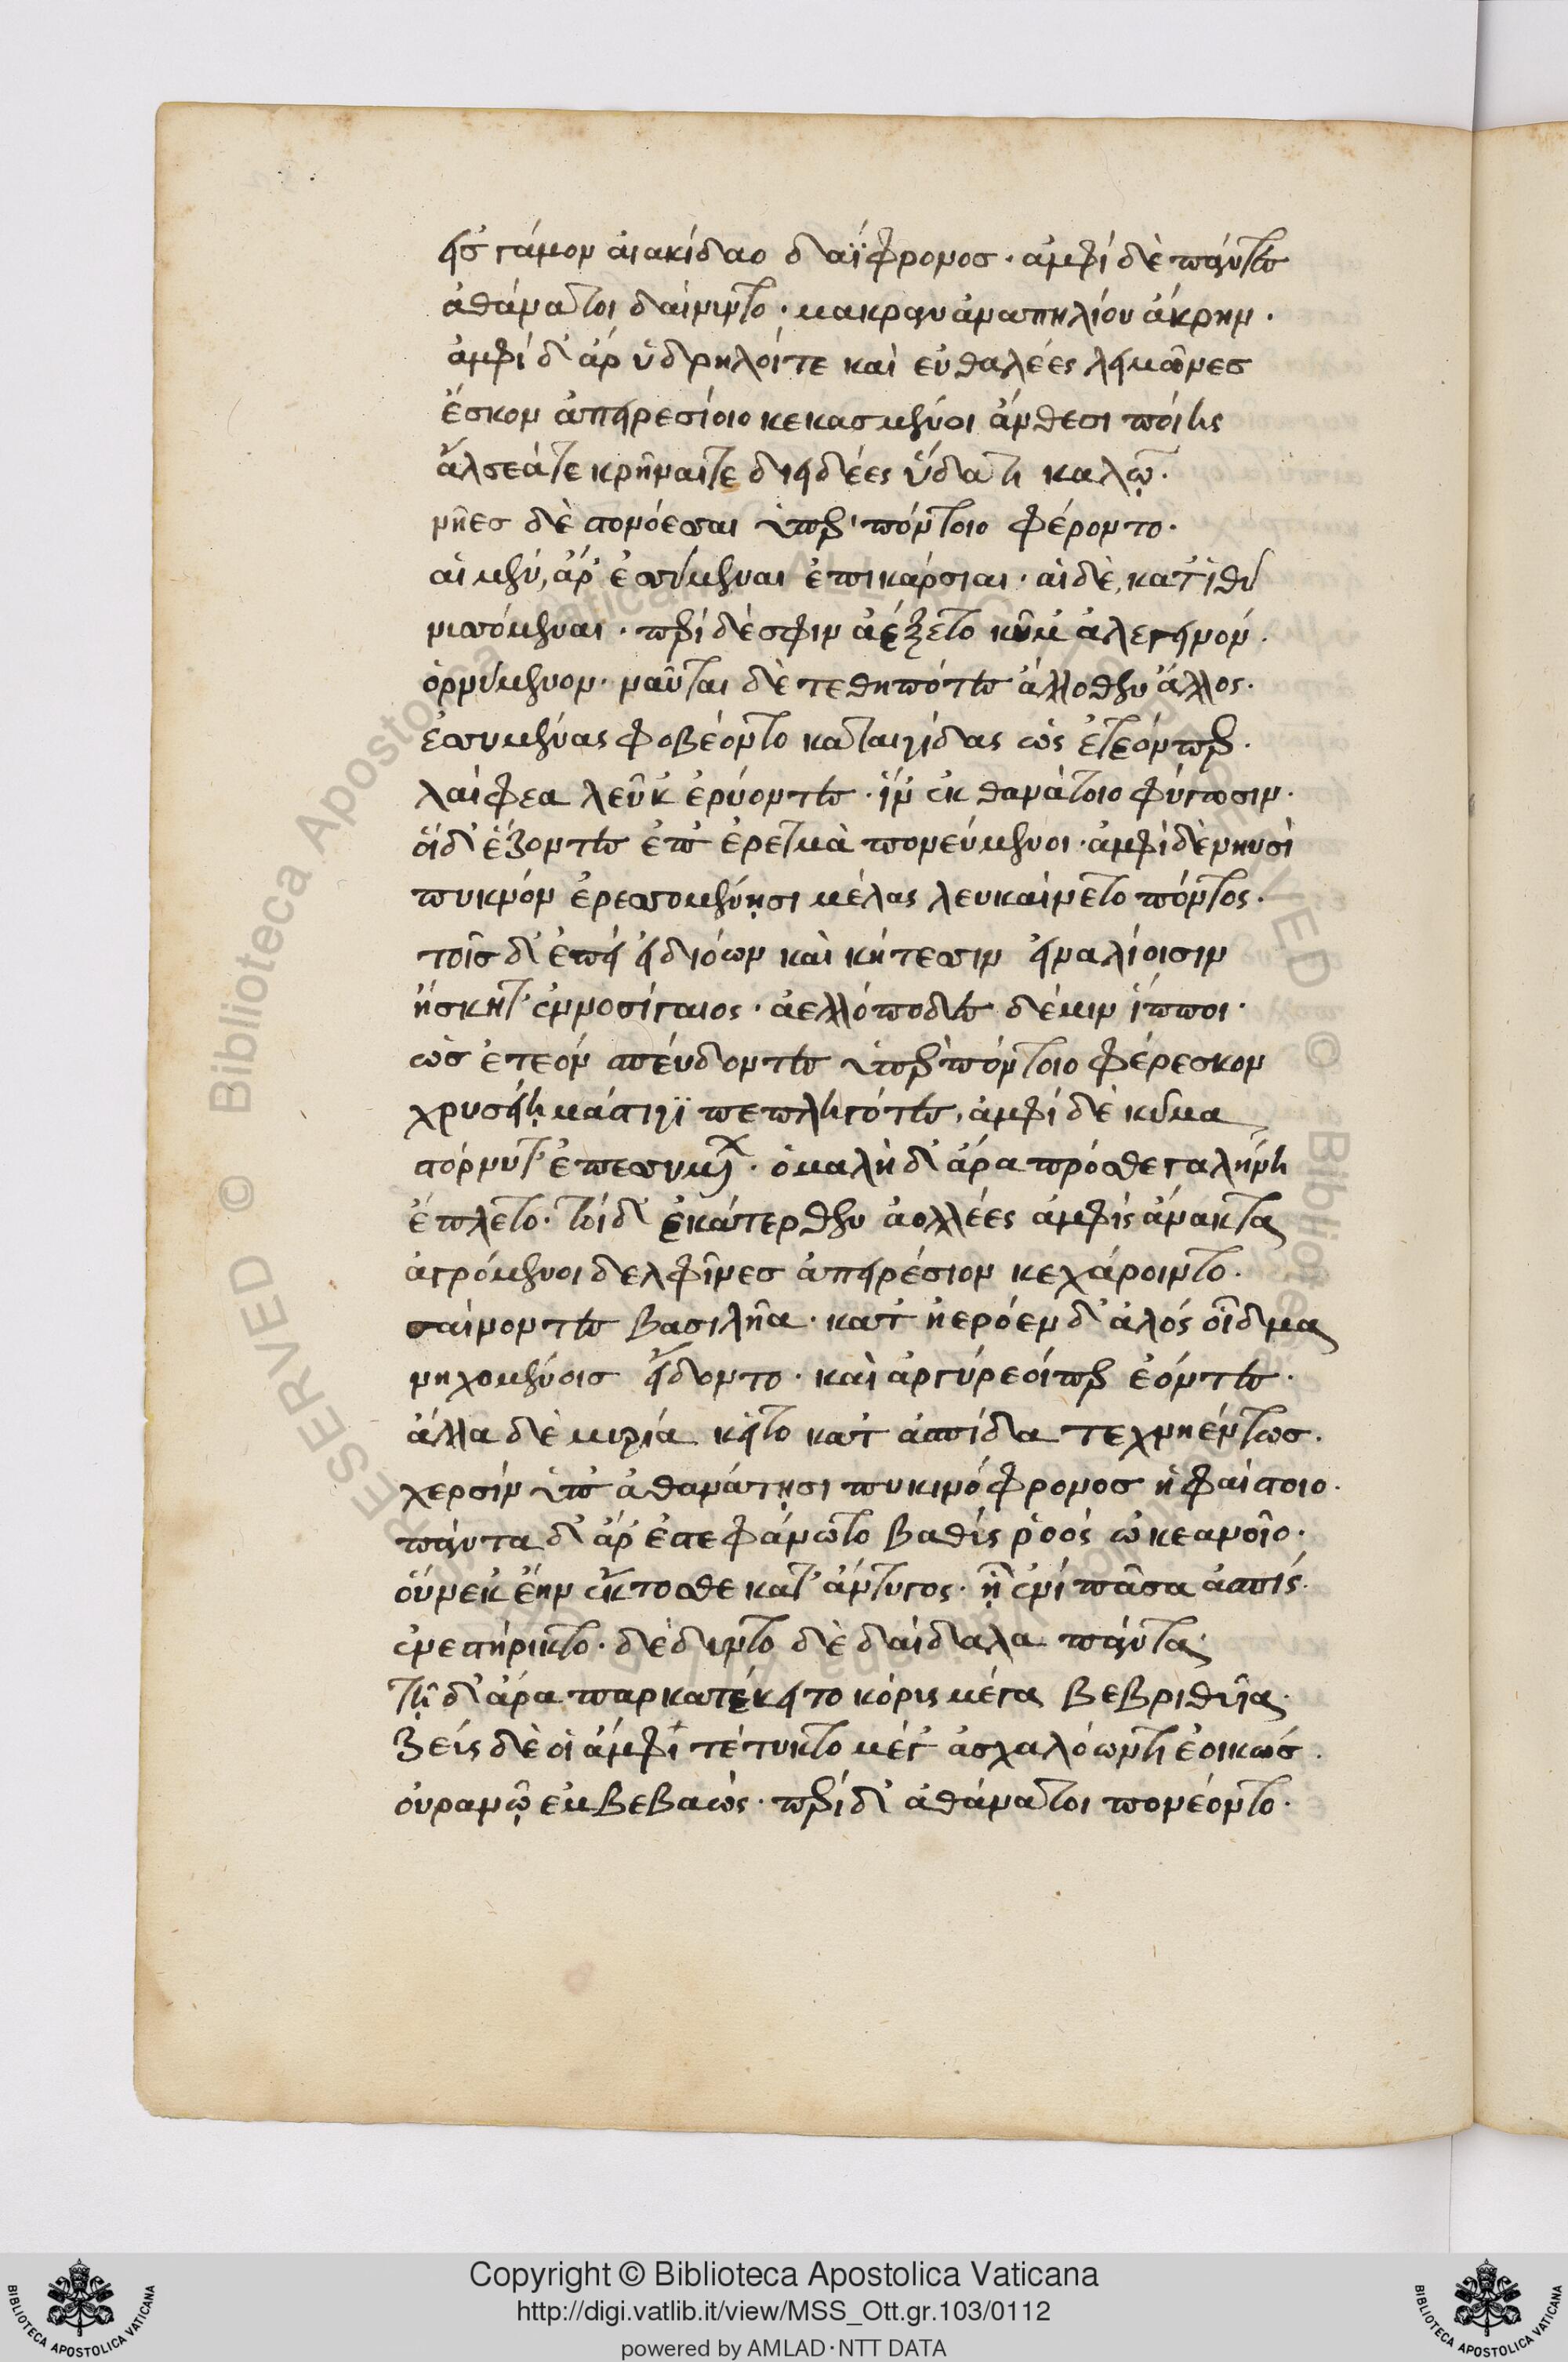 εἰσ γάμον αἰακίδαο δαΐφρονοσ· ἀμφὶ δὲ πάντες
ἀθάνατοι δαίνυντο· μακρὰν ἀνα πηλίου ἄκρην·
ἀμφὶ δ' ἄρ ὑδρηλοί τε καὶ εὐθαλέες λειμῶνεσ
ἔσκον ἀπειρεσίοιο κεκασμένοι ἄνθεσι ποίης
ἄλσεά τε κρῆναι τε διειδέες ὕδατι καλῷ·
νῆεσ δὲ στονόεσσαι ὑπὲρ πόντοιο φέροντο·
αἱ μὲν, ἄρ' ἐσσύμεναι ἐπικάρσιαι· αἱ δὲ, κατ' ἰθὺ
νισσόμεναι· περὶ δέ σφιν ἀέξετο κῦμ' ἀλεγεινόν·
ὀρνύμενον· ναῦται δὲ τεθηπότες ἄλλοθεν ἄλλος·
ἐσσυμένας φοβέοντο καταιγίδας ὡς ἐτεόνπερ·
λαίφεα λεῦκ' ἐρύοντες· ἵν' ἐκ θανάτοιο φύγωσιν·
οἱ δ' ἕζοντες ἐπ' ἐρετμὰ πονεύμενοι· ἀμφὶ δὲ νηυσὶ
πυκνὸν ἐρεσσομένῃσι μέλας λευκαίνετο πόντος·
τοῖσ δ' ἐπὶ εἰδιόων καὶ κήτεσσιν εἰναλίοισιν
ἤσκητ' ἐννοσίγαιος· ἀελλόποδες δέ μιν ἵπποι·
ὡσ ἐτεὸν σπεύδοντες ὑπὲρ πόντοιο φέρεσκον
χρυσείῃ μάστιγϊ πεπληγότες, ἀμφὶ δὲ κῦμα
στόρνυτ' ἐπεσσυμένων· ὁμαλὴ δ' ἄρα πρόσθε γαλήνη
ἔπλετο· τοὶ δ' ἑκάτερθεν ἀολλέες ἀμφὶς ἄνακτα
ἀγρόμενοι δελφῖνεσ ἀπειρέσιον κεχάροιντο·
σαίνοντες βασιλῆα· κατ' ἠερόεν δ' ἁλὸς οἶδμα
νηχομένοισ εἴδοντο· καὶ ἀργύρεοί περ ἐόντες·
ἄλλα δὲ μυρία κεῖτο κατ' ἀσπίδα τεχνηέντωσ·
χερσὶν ὑπ' ἀθανάτῃσι πυκινόφρονοσ ἡφαίστοιο·
πάντα δ' ἄρ' ἐστεφάνωτο βαθὺς ῥόος ὠκεανοῖο·
οὕνεκ' ἔην ἔκτοσθε κατ' ἄντυγος· ᾗ ἐνὶ πᾶσα ἀσπίς·
ἐνεστήρικτο· δέδιντο δὲ δαίδαλα πάντα·
τῇ δ' ἄρα παρκατέκειτο κόρις μέγα βεβριθυῖα·
ζεὺς δέ οἱ ἀμφὶ τέτυκτο μέγ' ἀσχαλόωντι ἐοικώς·
οὐρανῷ ἐμβεβαώς· περὶ δ' ἀθάνατοι πονέοντο·
Copyright © Biblioteca Apostolica Vaticana
http://digi.vatlib.it/view/MSS_Ott.gr.103/0112
powered by AMLAD·NTT DATA